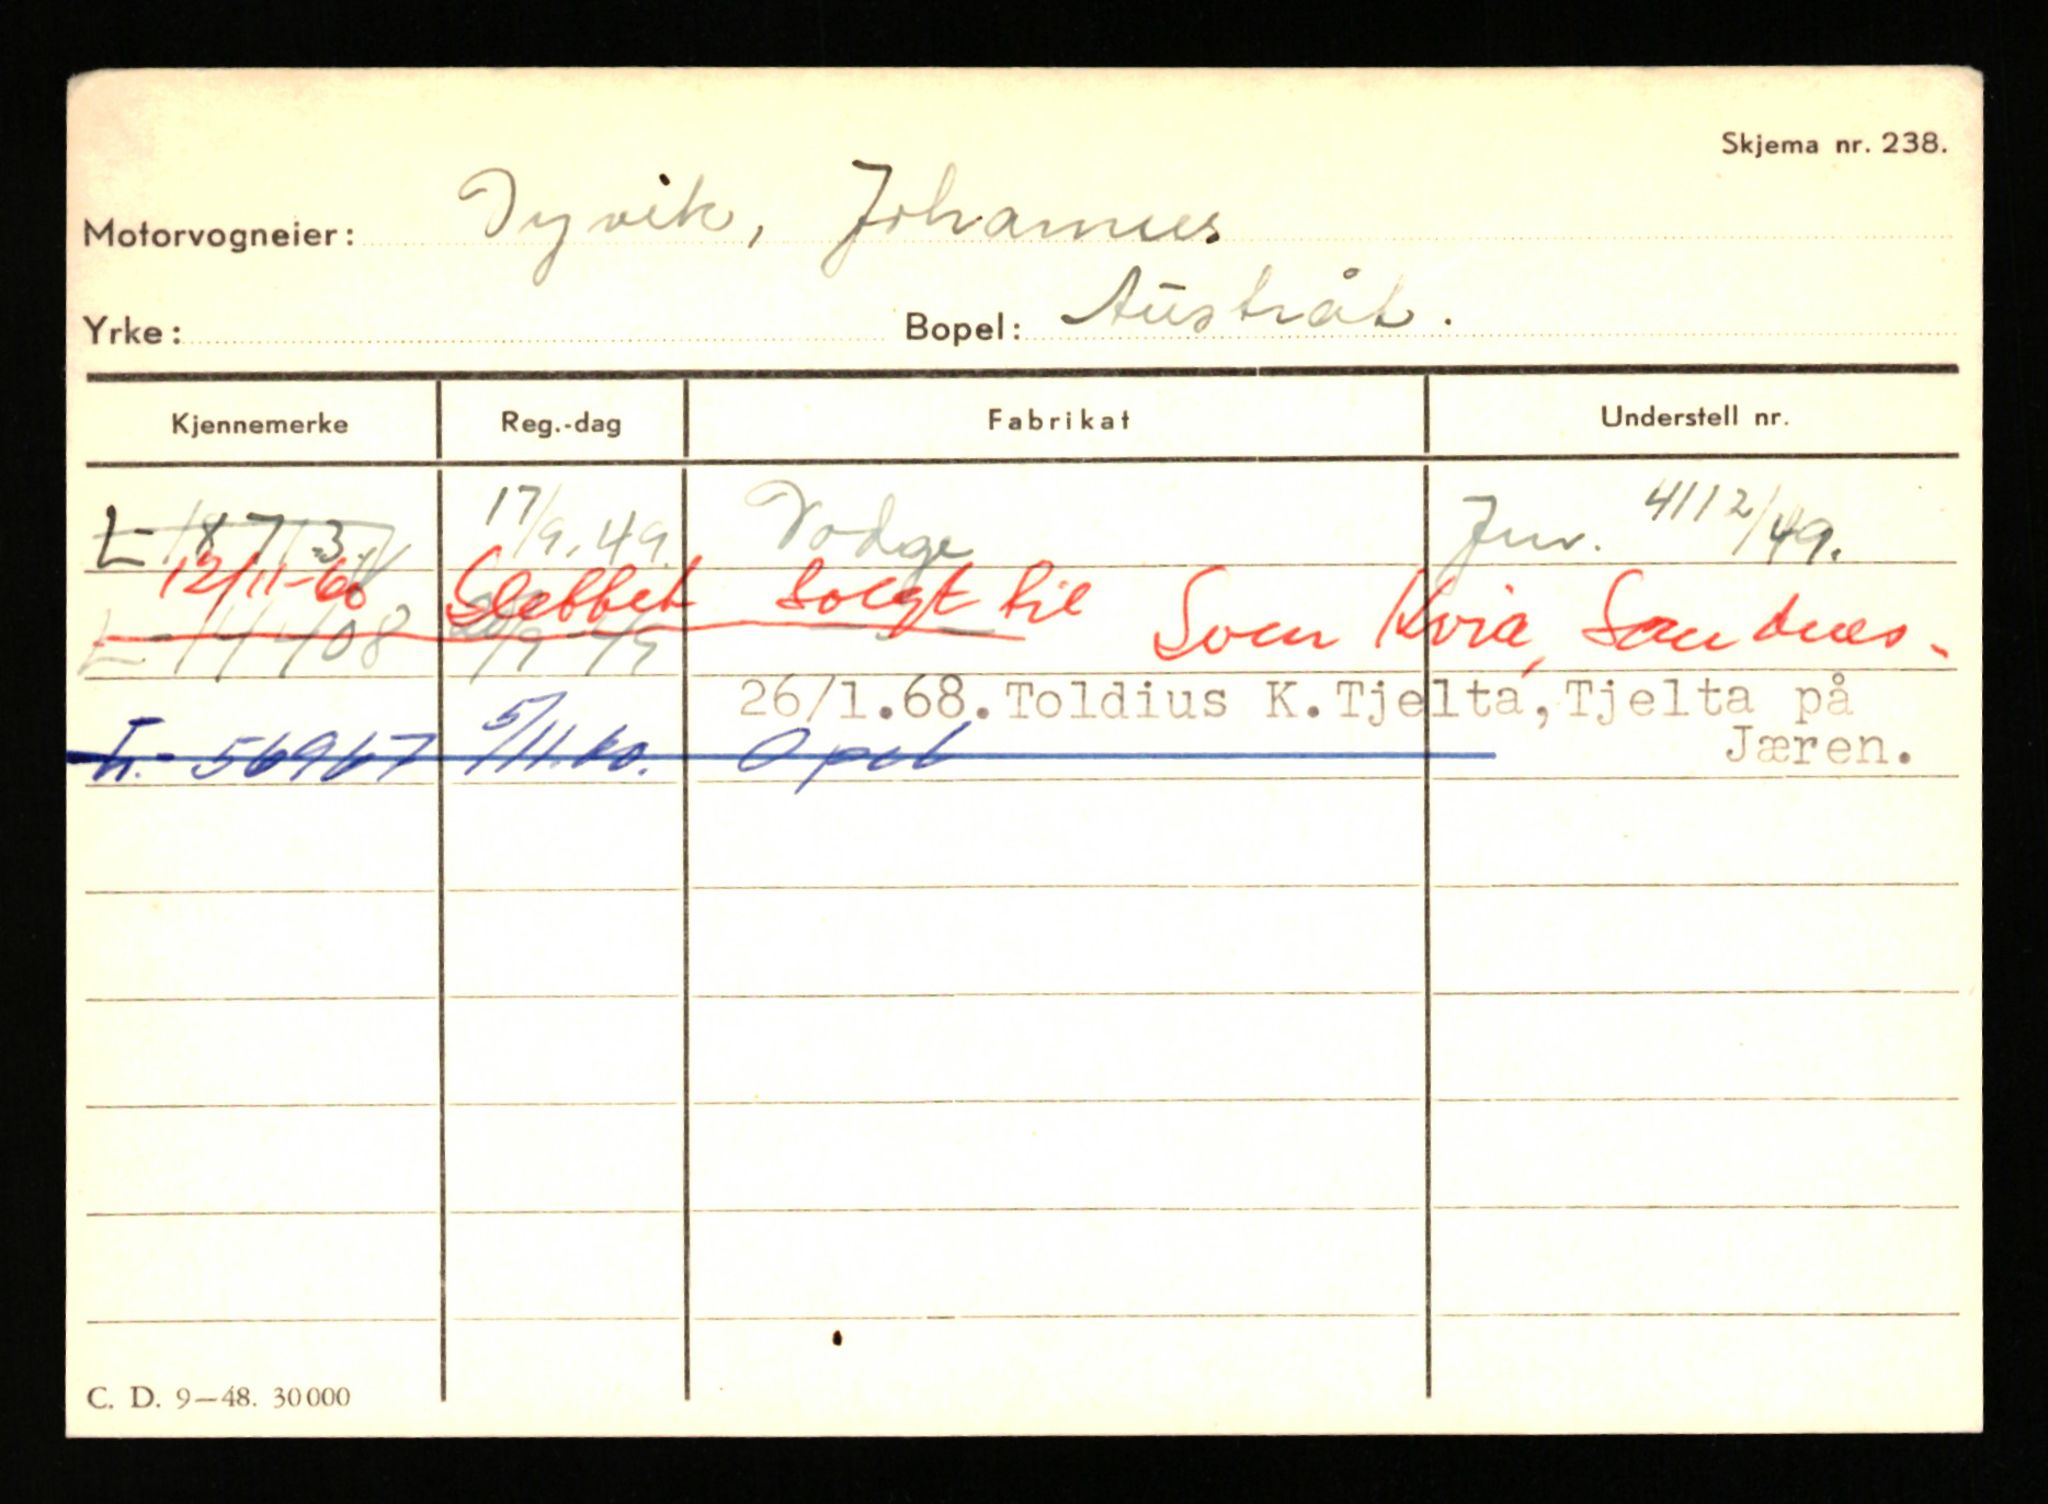 Skjema nr. 238.
Motorvogneier: Dyvik, Johannes
Yrke: Bopel: Austråt.
Kjennemerke Reg.-dag Fabrikat Understell nr.
17/9.49. Dodge Jnr. 4112/49.
12/11-60 Slettet Solgt til Sven Kvia, Sandnes.
L-14408 20/9-49
26/1.68.Toldius K.Tjelta,Tjelta på
Jæren.
L.-56967 5/11.60. Opel
C. D. 9—48. 30000